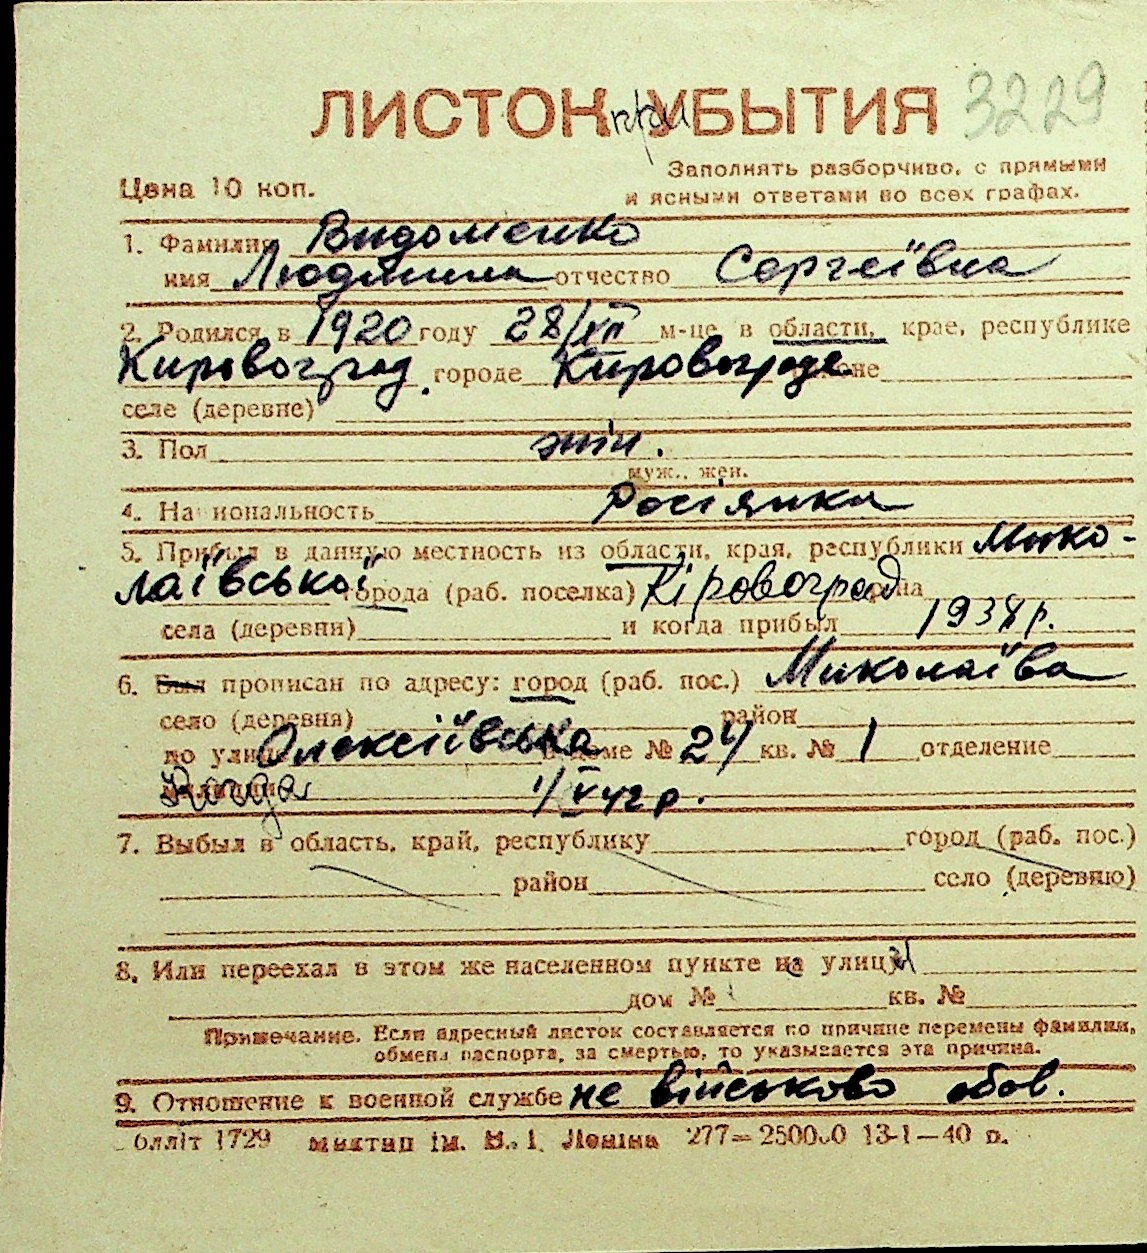 ЛИСТОК при УБЫТИЯ 3229
Цена 10 коп.
Заполнять разборчиво, с прямыми
и ясными ответами во всех графах.
1. Фамилия Видоменко
имя Людмила отчество Сергеївна
2. Родился в 1920 году 28/VII м-це в области, крае, республике
Кировоград. городе Кировограде районе
селе (деревне)
3. Пол жін.
муж., жен.
4. Национальность Росіянка
5. Прибыл в данную местность из области, края, республики Мико-
лаївської города (раб. поселка) Кіровоград района
села (деревни) и когда прибыл 1938 р.
6. Был прописан по адресу: город (раб. пос.) Миколаїва
село (деревня) район
по улице Олексіївська в доме № 24 кв. № 1 отделение
милиции 1/V 42 р.
7. Выбыл в область, край, республику город (раб. пос.)
район село (деревню)
8. Или переехал в этом же населенном пункте на улицу
дом № кв. №
Примечание. Если адресный листок составляется по причине перемены фамилии,
обмена паспорта, за смертью, то указывается эта причина.
9. Отношение к военной службе не військово обов.
блліт 1729 миктип ім. В. І. Леніна 277—250000 13-1—40 р.